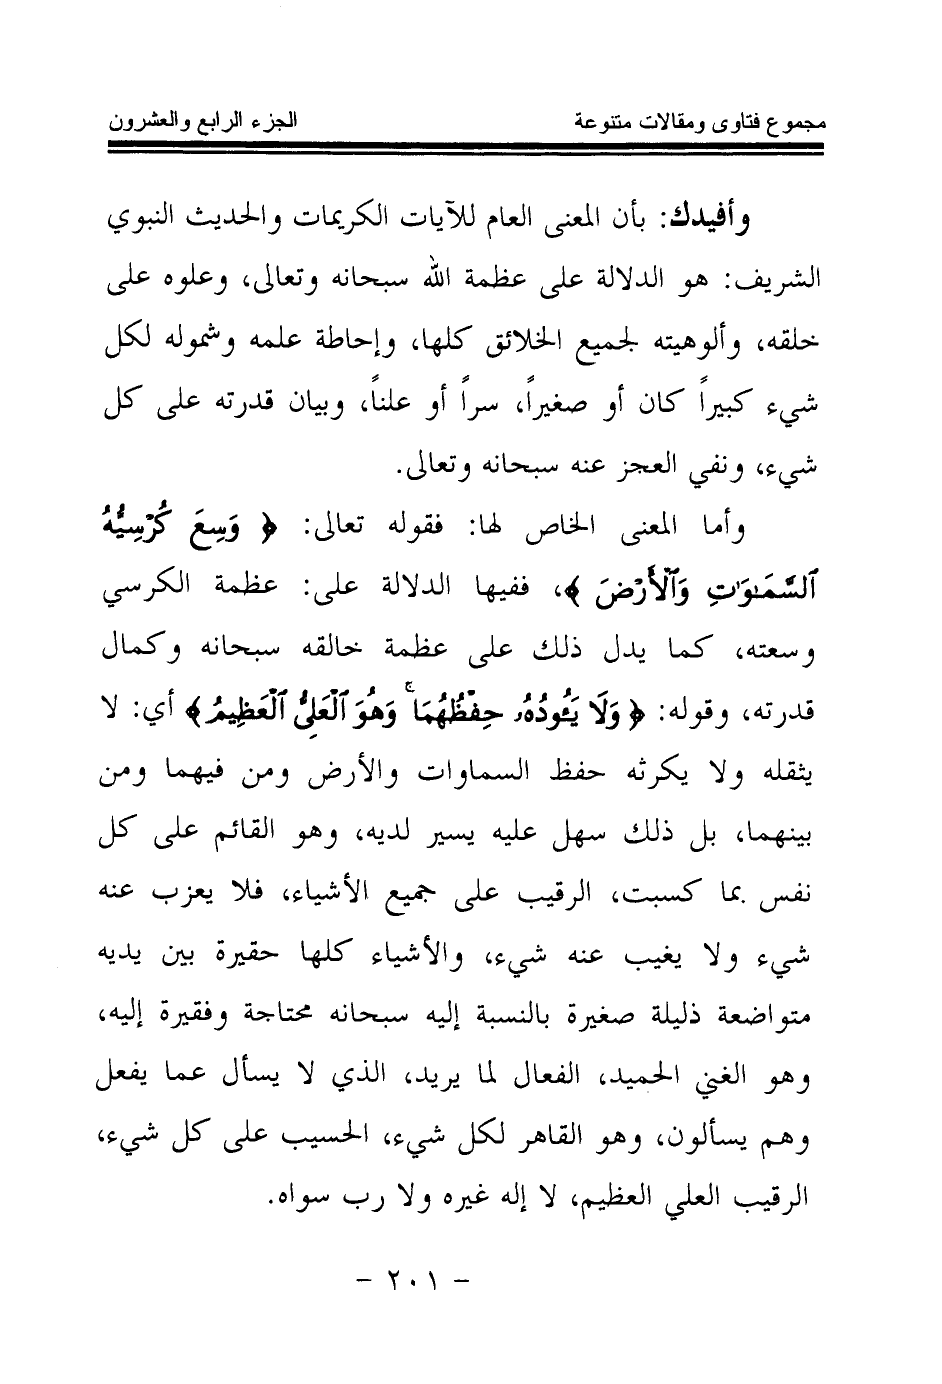 مجموع فتاوى ومقالات متنوعة
الجزء الرابع والعشرون
وأفيدك: بأن المعنى العام للآيات الكريمات والحديث النبوي
الشريف: هو الدلالة على عظمة الله سبحانه وتعالى، وعلوه على
خلقه، وألوهيته لجميع الخلائق كلها، وإحاطة علمه وشموله لكل
شيء كبيراً كان أو صغيراً، سراً أو علناً، وبيان قدرته على كل
شيء، ونفي العجز عنه سبحانه وتعالى.
وأما المعنى الخاص لها: فقوله تعالى: ﴿ وَسِعَ كُرْسِيُّهُ
ٱلسَّمَـٰوَٰتِ وَٱلْأَرْضَ ﴾، ففيها الدلالة على: عظمة الكرسي
وسعته، كما يدل ذلك على عظمة خالقه سبحانه وكمال
قدرته، وقوله: ﴿ وَلَا يَـُٔودُهُۥ حِفْظُهُمَا ۚ وَهُوَ ٱلْعَلِىُّ ٱلْعَظِيمُ ﴾ أي: لا
يثقله ولا يكرثه حفظ السماوات والأرض ومن فيهما ومن
بينهما، بل ذلك سهل عليه يسير لديه، وهو القائم على كل
نفس بما كسبت، الرقيب على جميع الأشياء، فلا يعزب عنه
شيء ولا يغيب عنه شيء، والأشياء كلها حقيرة بين يديه
متواضعة ذليلة صغيرة بالنسبة إليه سبحانه محتاجة وفقيرة إليه،
وهو الغني الحميد، الفعال لما يريد، الذي لا يسأل عما يفعل
وهم يسألون، وهو القاهر لكل شيء، الحسيب على كل شيء،
الرقيب العلي العظيم، لا إله غيره ولا رب سواه.
- ٢٠١ -